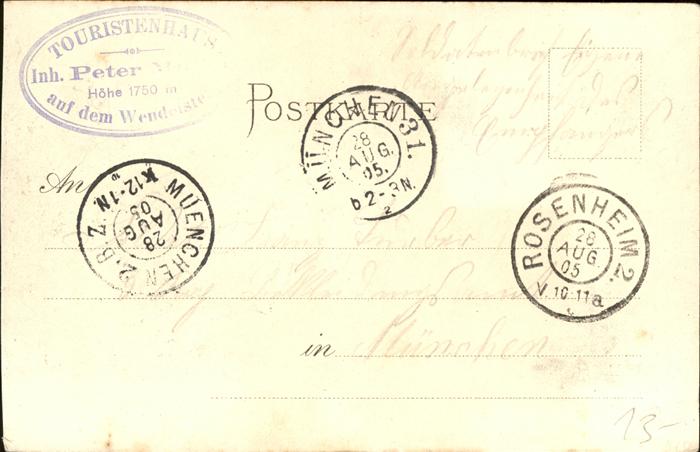 TOURISTENHAUS
Inh. Peter
Höhe 1750 m
auf dem Wendelste
Soldatenbrief Eigene
Angelegenheit des
Empfängers
POSTKARTE
MÜNCHEN 31.
28
AUG.
05.
b 2-3N.
2
An
MUENCHEN 2. B.Z.
K12-1N.
28
AUG
05
ROSENHEIM 2.
28
AUG.
05
V. 10-11 a
in München
13-